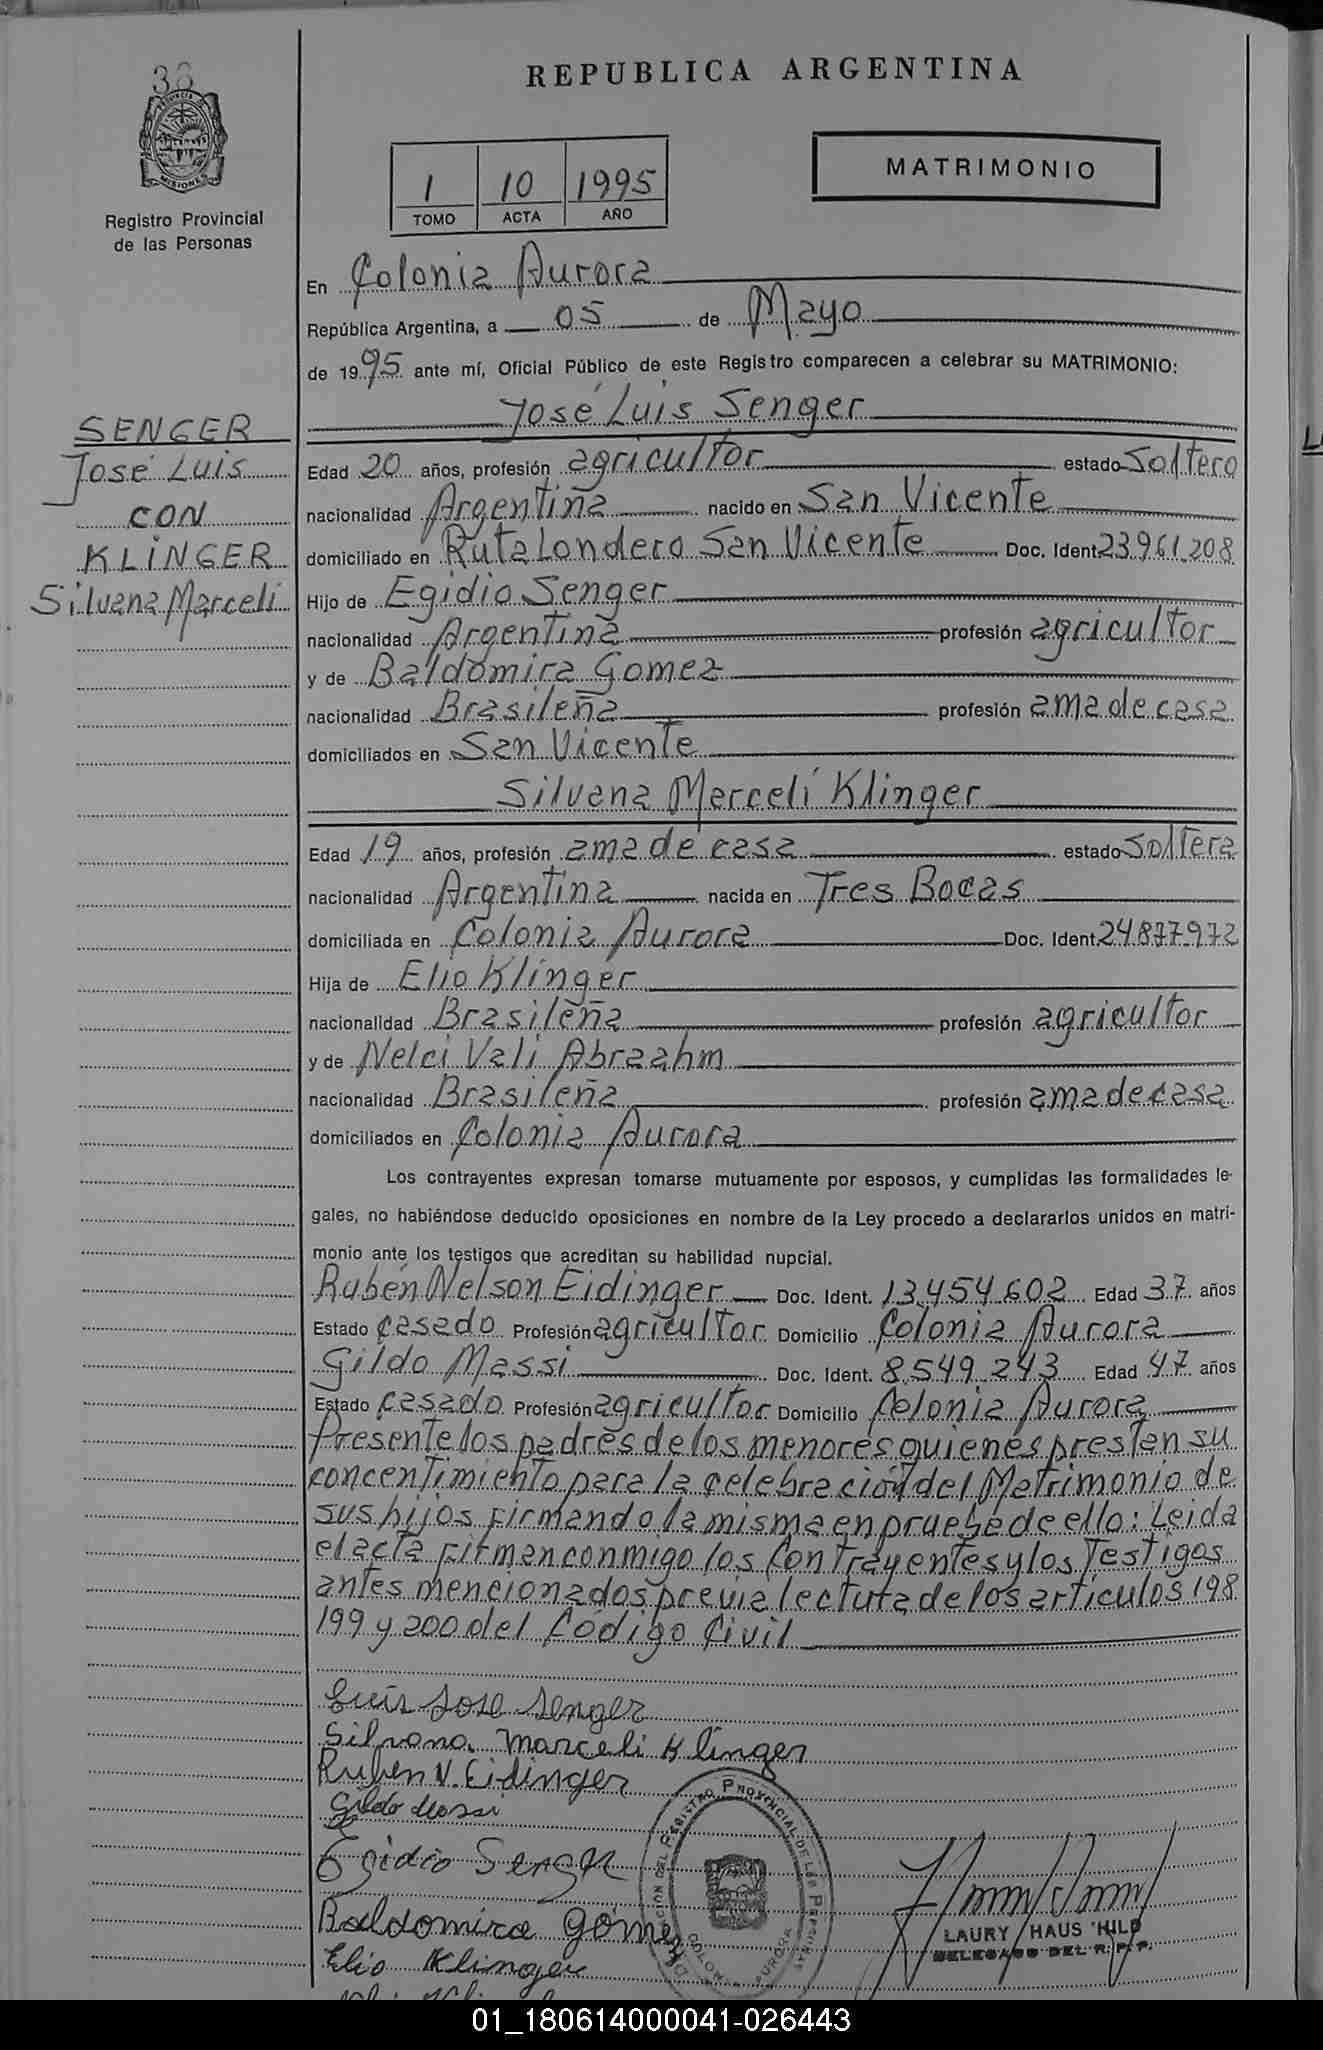 38
REPUBLICA ARGENTINA
MISIONES
Registro Provincial
de las Personas
1 10 1995
TOMO ACTA AÑO
MATRIMONIO
En Colonia Aurora
República Argentina, a 05 de Mayo
de 1995 ante mí, Oficial Público de este Registro comparecen a celebrar su MATRIMONIO:
José Luis Senger
SENGER
José Luis
CON
KLINGER
Silvana Marceli
Edad 20 años, profesión agricultor estado Soltero
nacionalidad Argentina nacido en San Vicente
domiciliado en Ruta Londero San Vicente Doc. Ident. 23.961.208
Hijo de Egidio Senger
nacionalidad Argentina profesión agricultor
y de Baldomira Gomez
nacionalidad Brasileña profesión ama de casa
domiciliados en San Vicente
Silvana Marceli Klinger
Edad 19 años, profesión ama de casa estado Soltera
nacionalidad Argentina nacida en Tres Bocas
domiciliada en Colonia Aurora Doc. Ident. 24877972
Hija de Elio Klinger
nacionalidad Brasileña profesión agricultor
y de Nelci Vali Abraahm
nacionalidad Brasileña profesión ama de casa
domiciliados en Colonia Aurora
Los contrayentes expresan tomarse mutuamente por esposos, y cumplidas las formalidades le-
gales, no habiéndose deducido oposiciones en nombre de la Ley procedo a declararlos unidos en matri-
monio ante los testigos que acreditan su habilidad nupcial.
Rubén Nelson Eidinger Doc. Ident. 13.454.602 Edad 37 años
Estado casado Profesión agricultor Domicilio Colonia Aurora
Gildo Massi Doc. Ident. 8.549.243 Edad 47 años
Estado casado Profesión agricultor Domicilio Colonia Aurora
Presente los padres de los menores quienes prestan su
concentimiento para la celebración del Matrimonio de
sus hijos firmando la misma en prueba de ello: Leida
el acta firman conmigo los Contrayentes y los Testigos
antes mencionados previa lectura de los artículos 198
199 y 200 del Código Civil
Luis Jose Senger
Silvana Marceli Klinger
Ruben N. Eidinger
Gildo Massi
Egidio Senger
Baldomira Gómez
Elio Klinger
REGISTRO PROVINCIAL DE LAS PERSONAS
COLONIA AURORA
LAURY HAUS HILD
DELEGADO DEL R. P. P.
01_180614000041-026443